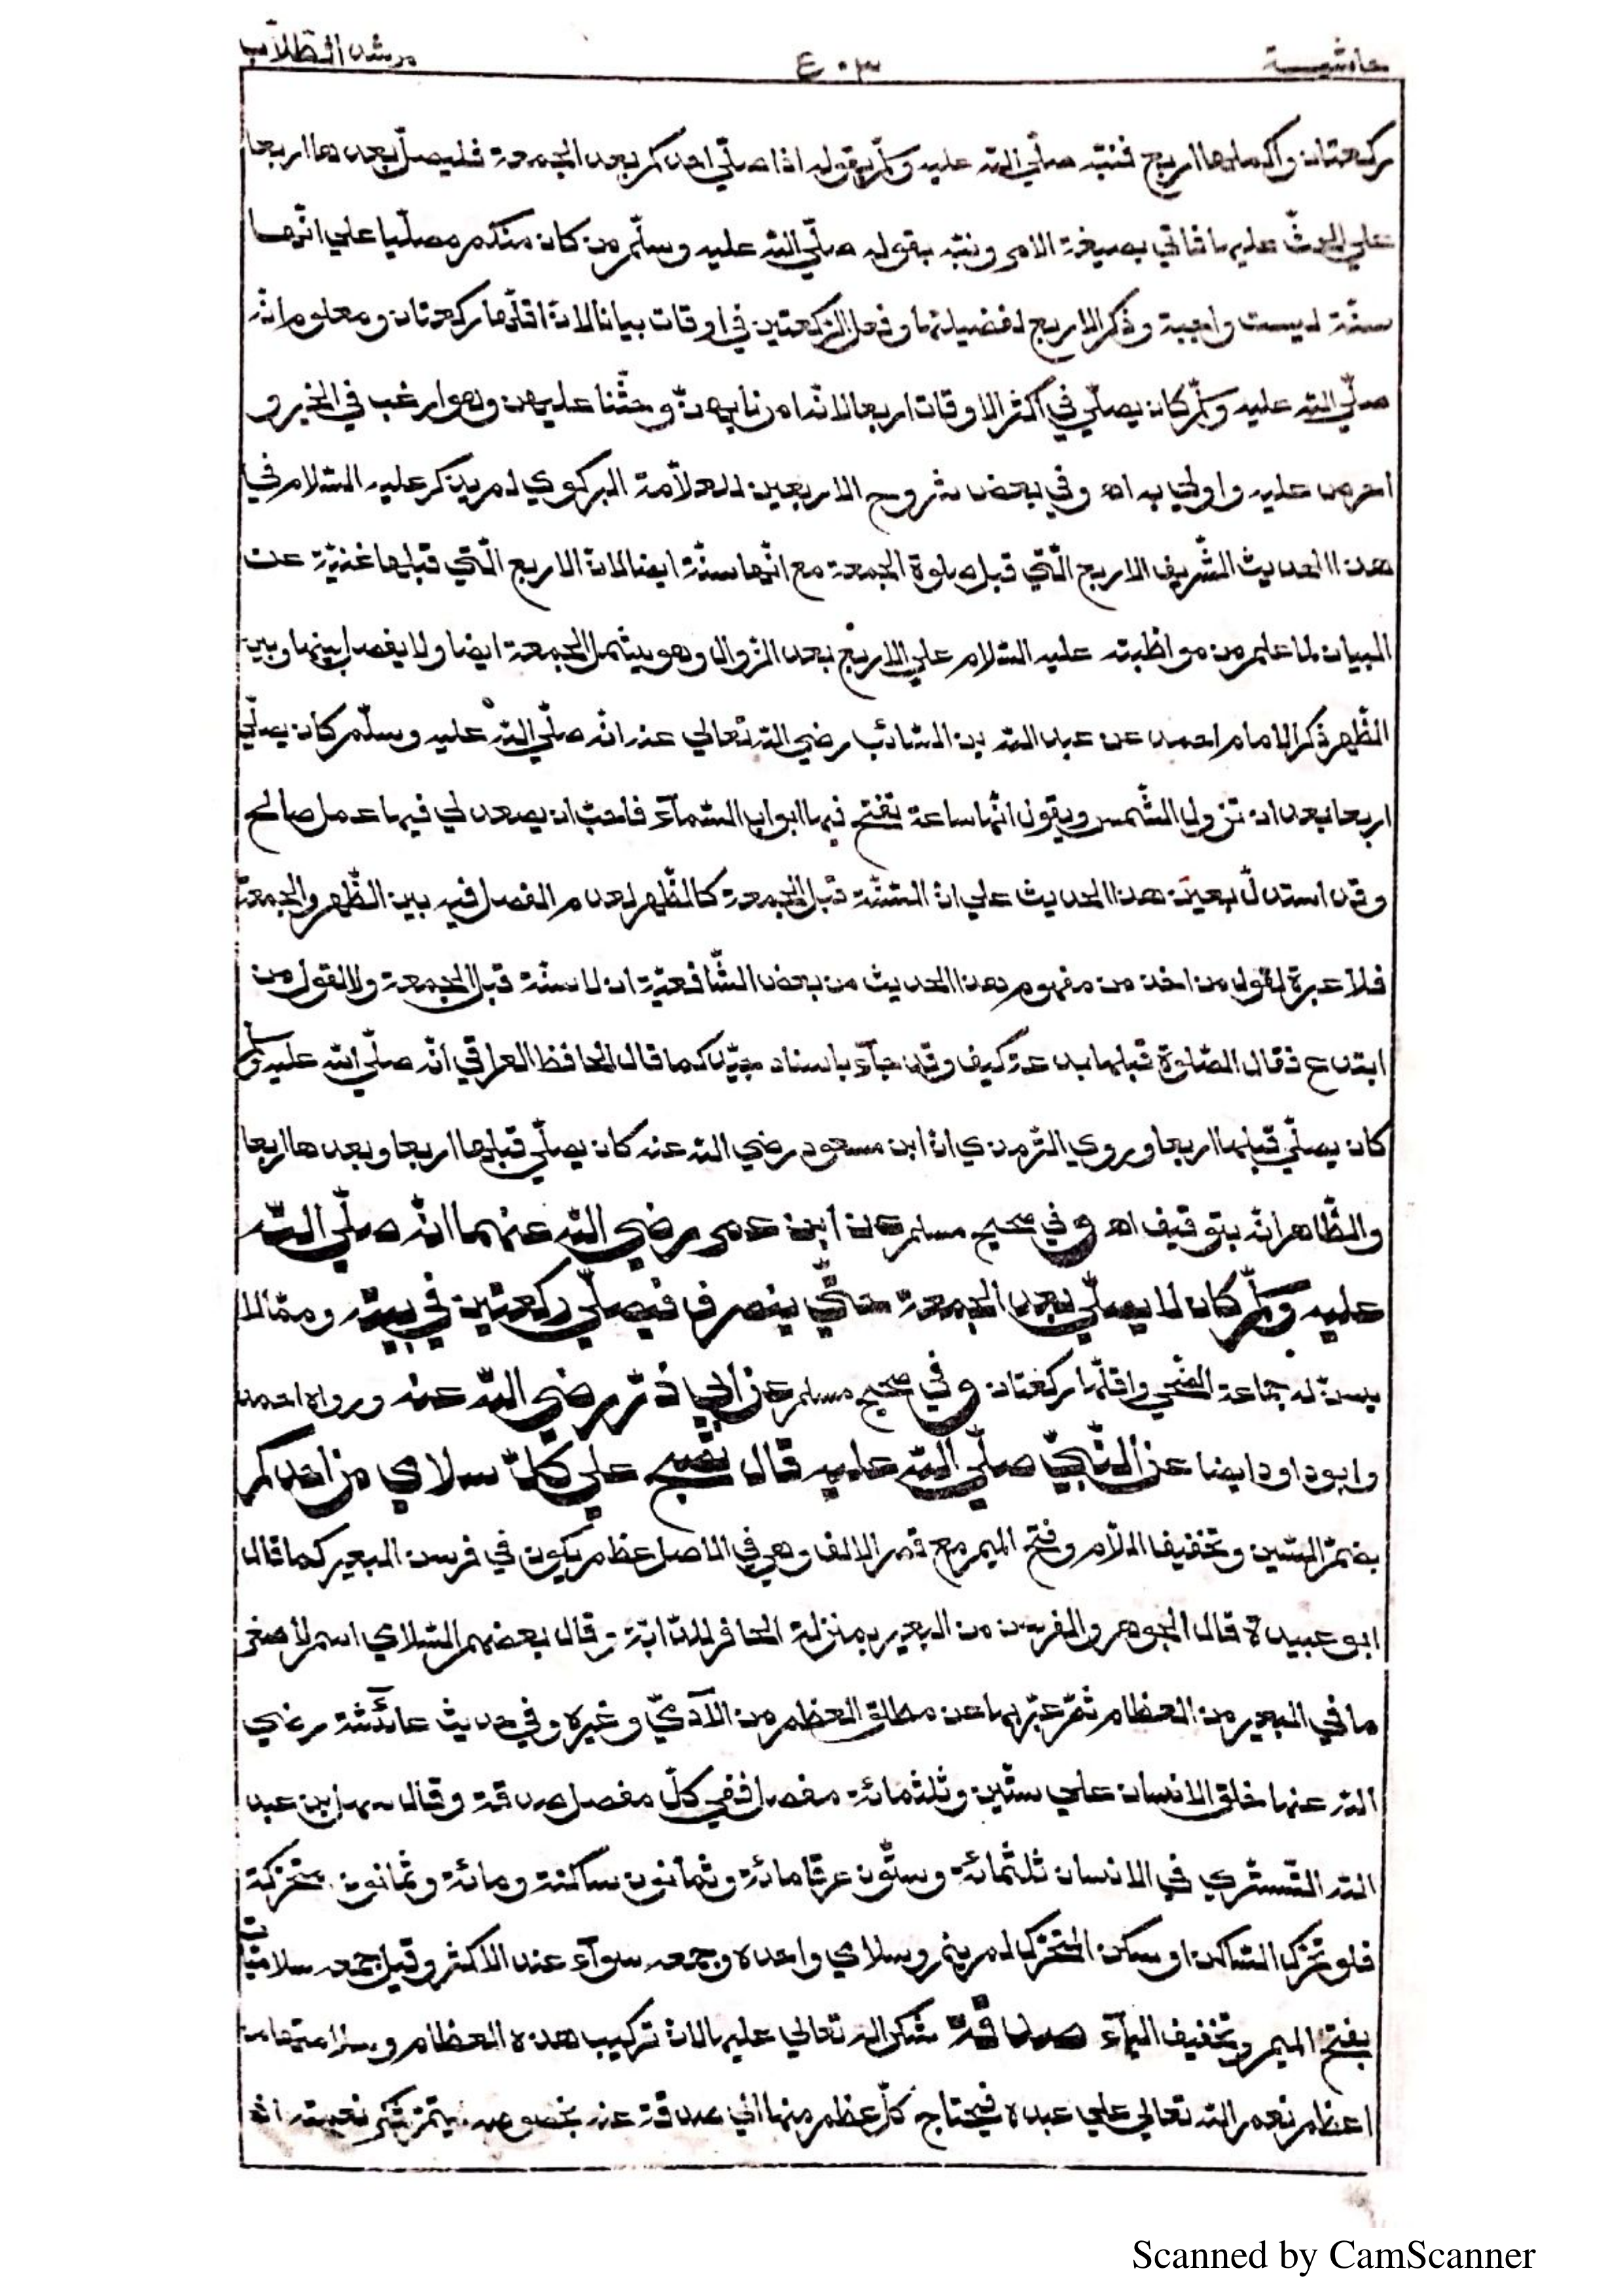 حاشية ٤٠٣ مرشد الطّلّاب
ركعتان وأكملها اربع فنبّه صلّي اللّه عليه وسلّم بقوله اذا صلّي احدكم بعد الجمعة فليصلّ بعدها اربعا
علي الحثّ عليها فاتي بصيغة الامر ونبّه بقوله صلّي اللّه عليه وسلّم من كان منكم مصلّيا علي انّها
سنّة ليست واجبة وذكر الاربع لفضيلتها وفعل الرّكعتين في اوقات بيانا لانّ اقلّها ركعتان ومعلوم انّه
صلّي اللّه عليه وسلّم كان يصلّي في اكثر الاوقات اربعا لانّه امرنا بهنّ وحثّنا عليهن وهو ارغب في الخير و
احرص عليه واولي به اه وفي بعض شروح الاربعين للعلّامة البركوي لم يذكر عليه السّلام في
هذا الحديث الشّريف الاربع الّتي قبل صلوة الجمعة مع انّها سنّة ايضا لانّ الاربع الّتي قبلها غنيّة عن
البيان لما علم من مواظبته عليه السّلام علي الاربع بعد الزّوال وهو يشمل الجمعة ايضا ولا يفصل بينها وبين
الظّهر ذكر الامام احمد عن عبد اللّه بن السّائب رضي اللّه تعالي عنه انّه صلّي اللّه عليه وسلّم كان يصلّي
اربعا بعد ان تزول الشّمس ويقول انّها ساعة تفتح فيها ابواب السّمآء فاحبّ ان يصعد لي فيها عمل صالح
وقد استدلّ بعين هذا الحديث علي انّ السّنّة قبل الجمعة كالظّهر لعدم الفصل فيه بين الظّهر والجمعة
فلا عبرة لقول من اخذ من مفهوم هذا الحديث من بعض الشّافعيّة ان لا سنّة قبل الجمعة ولا لقول من
ابتدع فقال الصّلوة قبلها بدعة كيف وقد جآء باسناد جيّد كما قال الحافظ العراقي انّه صلّي اللّه عليه وسلّم
كان يصلّي قبلها اربعا وروي التّرمذي انّ ابن مسعود رضي اللّه عنه كان يصلّي قبلها اربعا وبعدها اربعا
والظّاهر انّه بتوقيف اه وفي صحيح مسلم عن ابن عمر رضي اللّه عنهما انّه صلّي اللّه
عليه وسلّم كان لا يصلّي بعد الجمعة حتّي ينصرف فيصلّي ركعتين في بيته وممّا لا
يسنّ له جماعة الضّحي واقلّها ركعتان وفي صحيح مسلم عن ابي ذرّ رضي اللّه عنه ورواه احمد
وابو داود ايضا عن النّبيّ صلّي اللّه عليه قال تصبح علي كلّ سلامي من احدكم
بضمّ السّين وتخفيف اللّام وفتح الميم مع قصر الالف وهي في الاصل عظم يكون في فرسن البعير كما قال
ابو عبيدة قال الجوهر والفرسن من البعير بمنزلة الحافر للدّابّة وقال بعضهم السّلامي اسم لأصغر
ما في البعير من العظام ثمّ عبّر بها عن مطلق العظم من الآدميّ وغيره وفي حديث عائشة رضي
اللّه عنها خلق الانسان علي ستّين وثلثمائة مفصل ففي كلّ مفصل صدقة وقال سهل بن عبد
اللّه التّستري في الانسان ثلثمائة وستّون عرقا مائة وثمانون ساكنة ومائة وثمانون متحرّكة
فلو تحرّك السّاكن او سكن المتحرّك لم ينم وسلامي واحده وجمعه سوآء عند الاكثر وقيل جمعه سلاميّات
بفتح الميم وتخفيف اليآء صدقة شكر اللّه تعالي عليها لانّ تركيب هذه العظام وسلامتها من
اعظم نعم اللّه تعالي علي عبده فيحتاج كلّ عظم منها الي صدقة عنه بخصوصه ليتمّ شكر نعمته انّه
Scanned by CamScanner